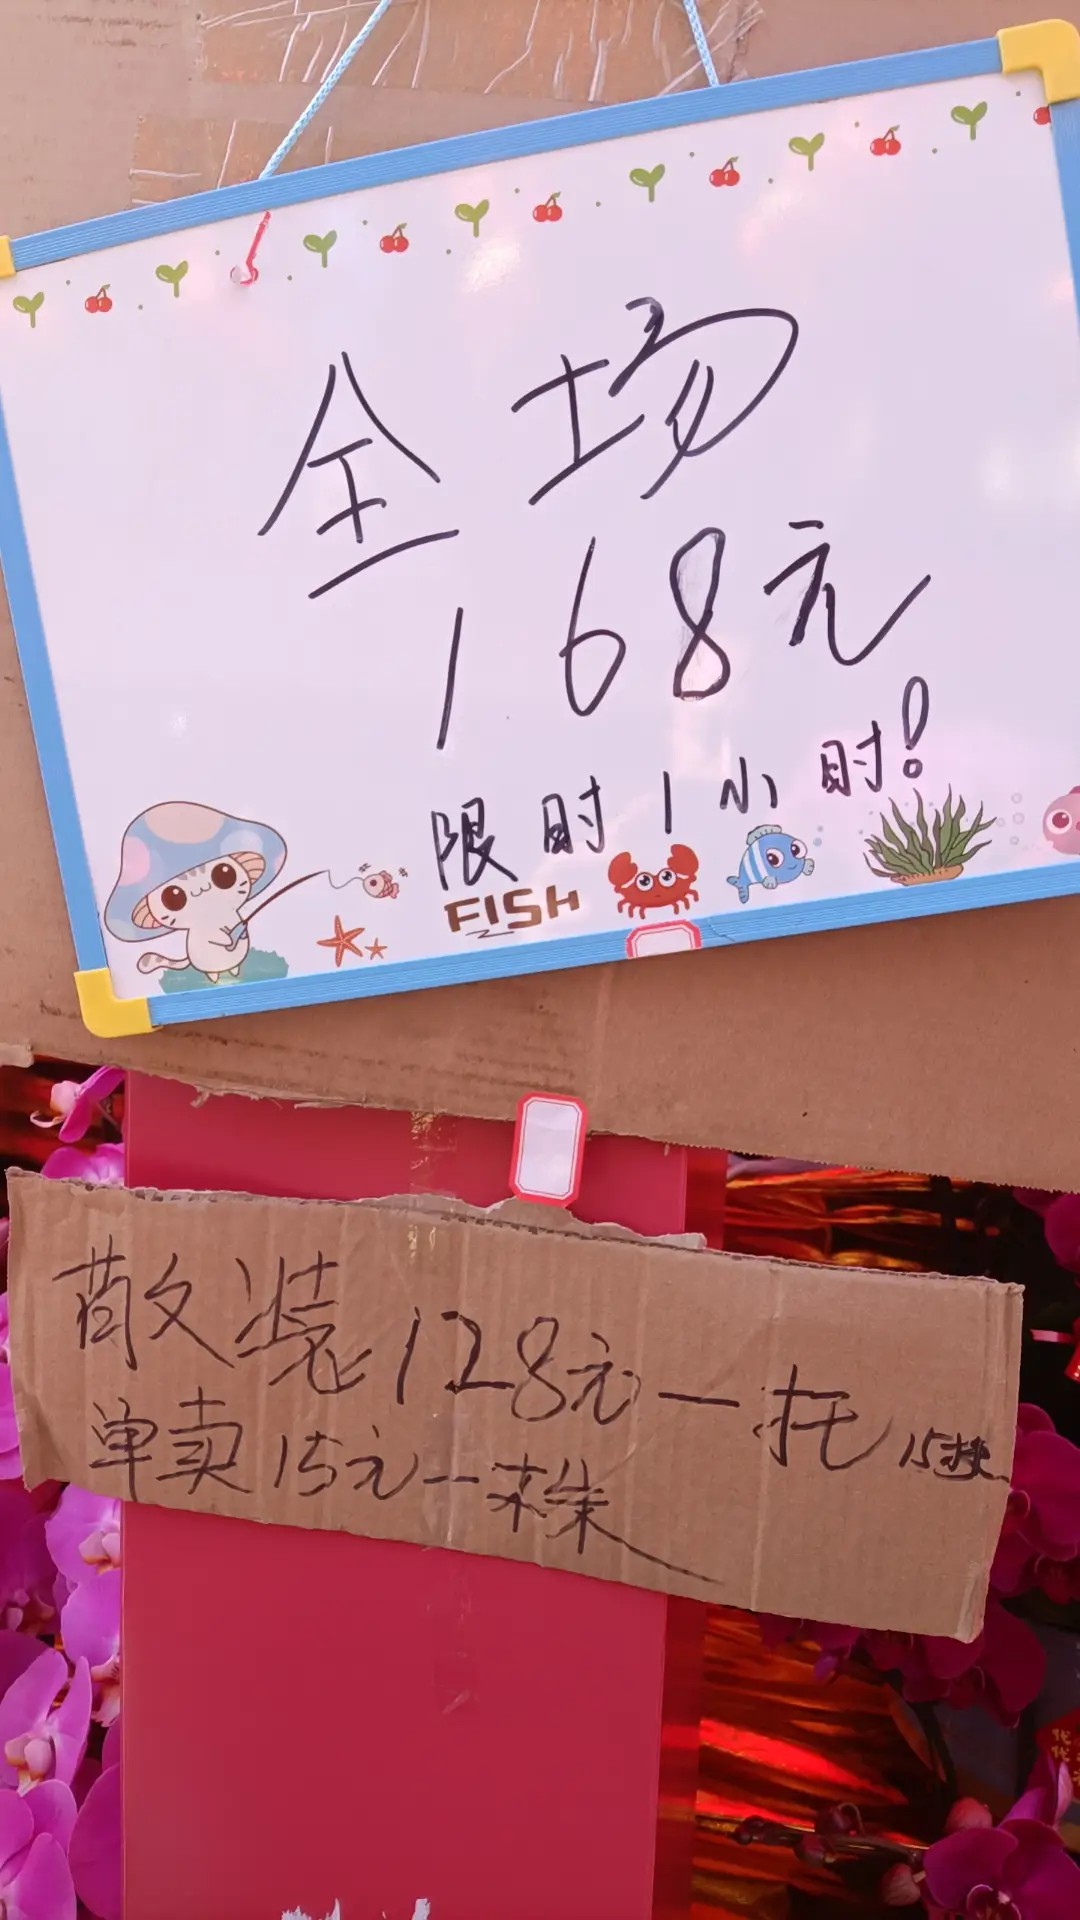 全场
168元
限时1小时!
FISH
散装128元一托 15株
单卖15元一株